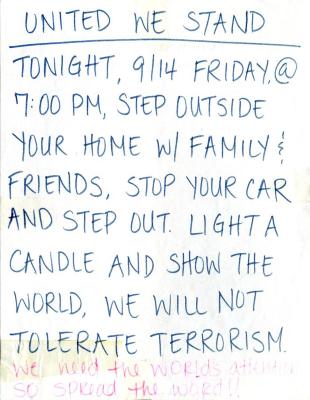 UNITED WE STAND
TONIGHT, 9/14 FRIDAY, @
7:00 PM, STEP OUTSIDE
YOUR HOME W/ FAMILY &
FRIENDS, STOP YOUR CAR
AND STEP OUT. LIGHT A
CANDLE AND SHOW THE
WORLD, WE WILL NOT
TOLERATE TERRORISM.
We need the WORLDS attention
SO SPREAD the WORD!!